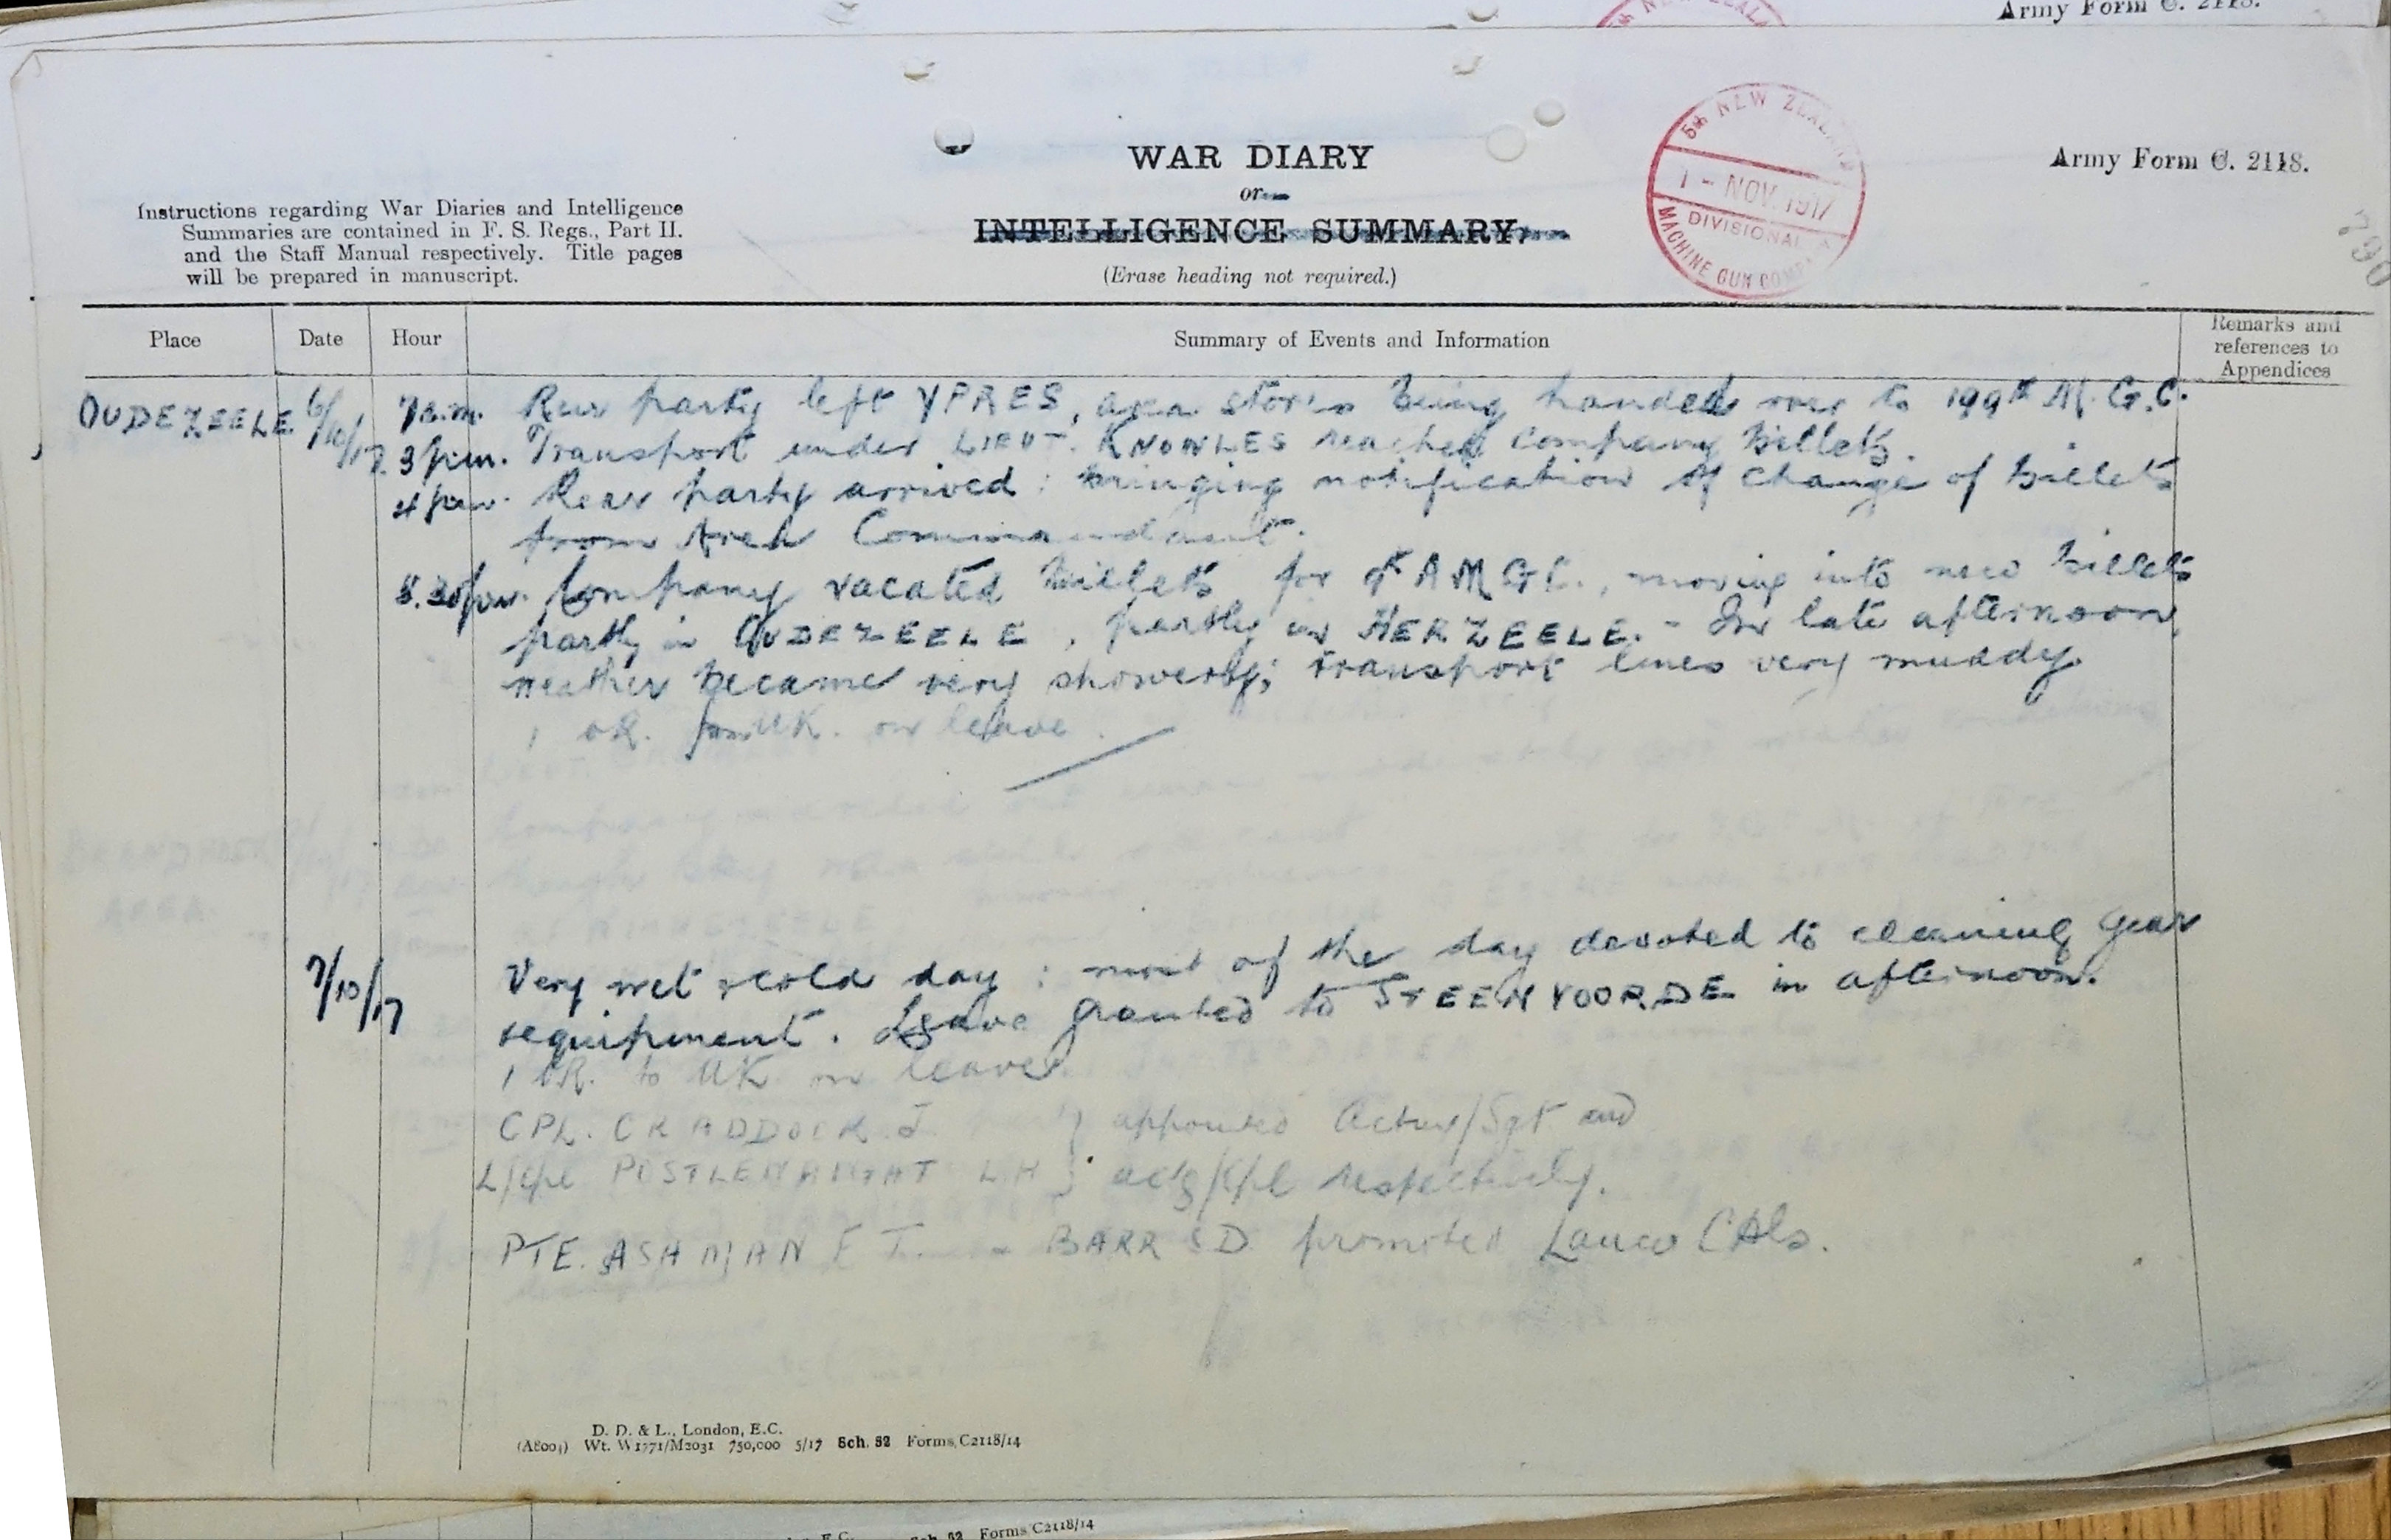 Army Form C. 2118.
WAR DIARY
or
INTELLIGENCE SUMMARY.
(Erase heading not required.)
Army Form C. 2118.
Instructions regarding War Diaries and Intelligence
Summaries are contained in F. S. Regs., Part II.
and the Staff Manual respectively. Title pages
will be prepared in manuscript.
5th NEW ZEALAND
1 - NOV. 1917
DIVISIONAL
MACHINE GUN COMPANY
790
Place Date Hour Summary of Events and Information Remarks and
references to
Appendices
OUDEZEELE 6/10/17 7a.m. Rear party left YPRES, area stores being handed over to 199th M.G.C.
3 p.m. Transport under LIEUT. KNOWLES reached Company billets.
4 p.m. Rear party arrived : bringing notification of change of billets
from Area Commandant.
5.30 p.m. Company vacated billets for A M G C., moving into new billets
partly in OUDEZEELE, partly in HERZEELE. - In late afternoon,
weather became very showery; transport lines very muddy
1 OR. from UK. on leave.
7/10/17 Very wet & cold day : most of the day devoted to cleaning gear
& equipment. Leave granted to STEENVOORDE in afternoon.
1 OR. to UK on leave
CPL. CRADDOCK J. } appointed Actg/Sgt and
L/Cpl POSTLEWAIGHT L H } actg/Cpl respectively.
PTE. ASHMAN F T. BARR D promoted Lance Cpls.
D. D. & L., London, E.C.
(A8001) Wt. W1771/M2031 750,000 5/17 Sch. 52 Forms, C2118/14
Sch. 52 Forms C2118/14